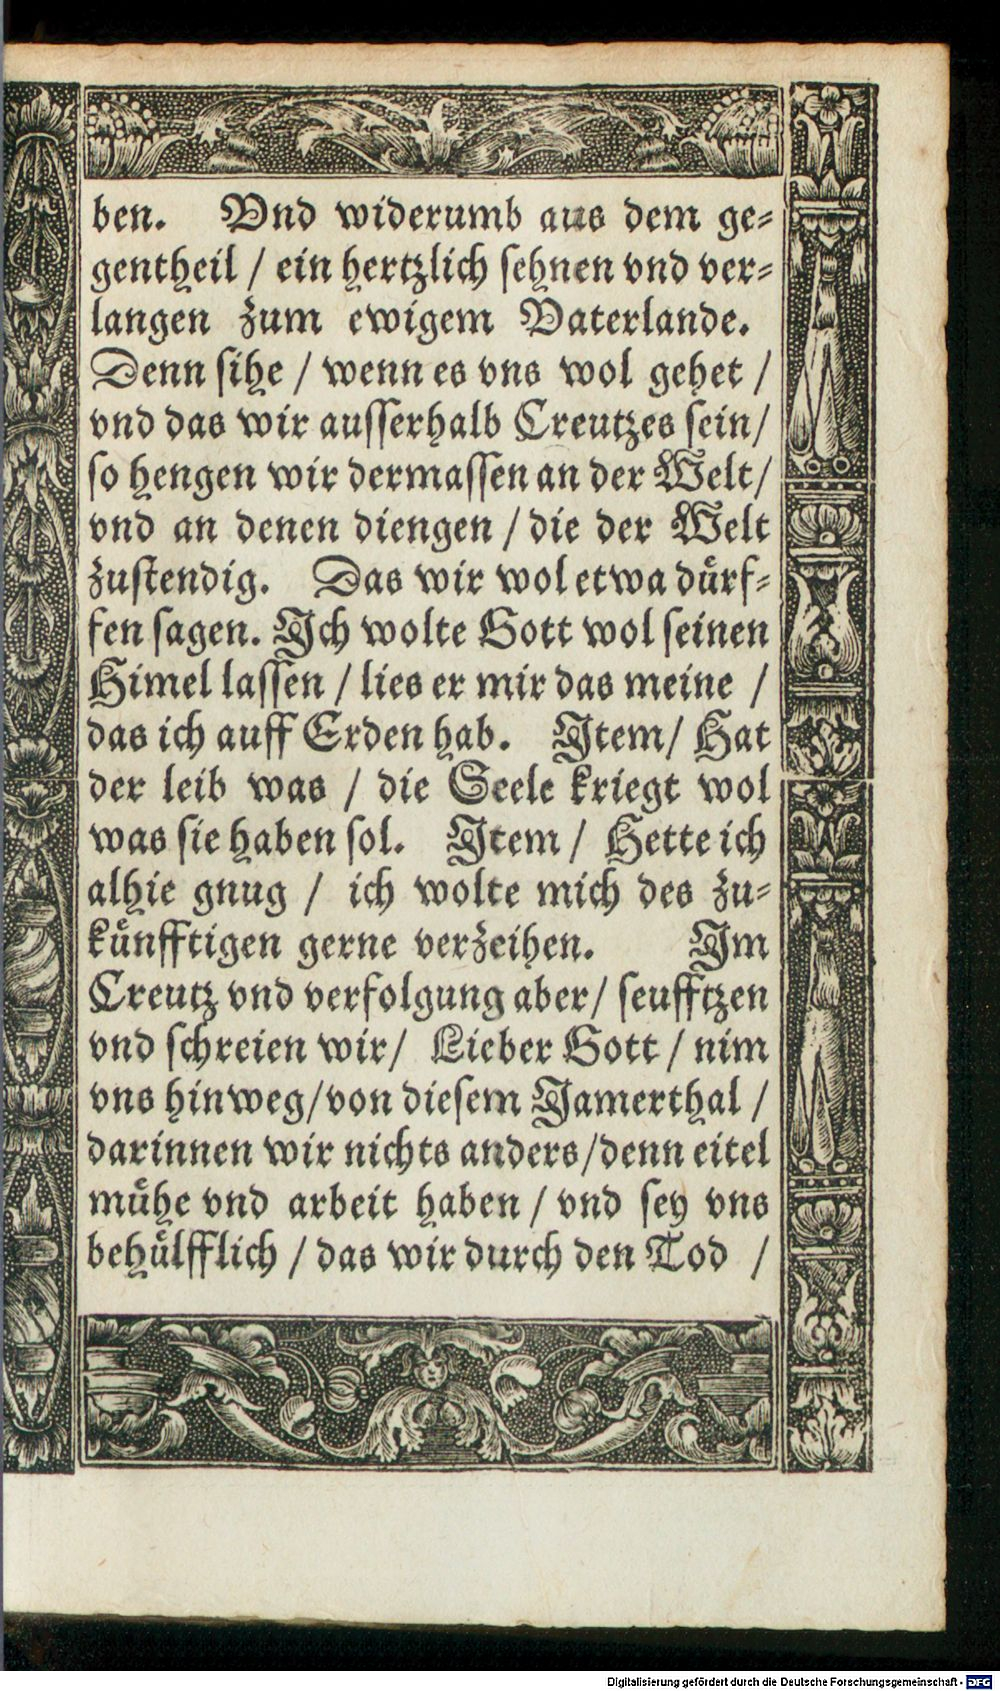 ben. Vnd widerumb aus dem ge-
gentheil / ein hertzlich sehnen vnd ver-
langen zum ewigem Vaterlande.
Denn sihe / wenn es vns wol gehet /
vnd das wir ausserhalb Creutzes sein/
so hengen wir dermassen an der Welt/
vnd an denen diengen / die der Welt
zustendig. Das wir wol etwa dürf-
fen sagen. Jch wolte Gott wol seinen
Himel lassen / lies er mir das meine /
das ich auff Erden hab. Jtem/ Hat
der leib was / die Seele kriegt wol
was sie haben sol. Jtem / Hette ich
alhie gnug / ich wolte mich des zu-
künfftigen gerne verzeihen. Jm
Creutz vnd verfolgung aber/ seufftzen
vnd schreien wir/ Lieber Gott / nim
vns hinweg/von diesem Jamerthal /
darinnen wir nichts anders/denn eitel
mühe vnd arbeit haben / vnd sey vns
behülfflich / das wir durch den Tod /
Digitalisierung gefördert durch die Deutsche Forschungsgemeinschaft - DFG